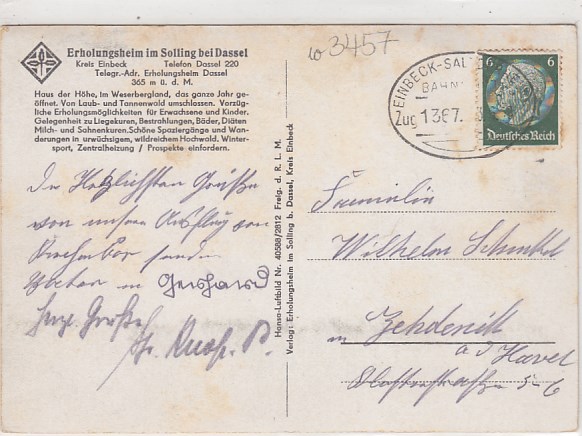 Erholungsheim im Solling bei Dassel
Kreis Einbeck Telefon Dassel 220
Telegr.-Adr. Erholungsheim Dassel
365 m ü. d. M.
Haus der Höhe, im Weserbergland, das ganze Jahr ge-
öffnet. Von Laub- und Tannenwald umschlossen. Vorzüg-
liche Erholungsmöglichkeiten für Erwachsene und Kinder.
Gelegenheit zu Liegekuren, Bestrahlungen, Bäder, Diäten
Milch- und Sahnenkuren. Schöne Spaziergänge und Wan-
derungen in urwüchsigem, wildreichem Hochwald. Winter-
sport, Zentralheizung / Prospekte einfordern.
Die Herzlichsten Grüße
von unserm Ausflug
senden
Gerhard
Hansa-Luftbild Nr. 40588/2812 Freig. d. R. L. M.
Verlag: Erholungsheim im Solling b. Dassel, Kreis Einbeck
3457
EINBECK-SAL
BAHN
Zug 1367.
6 6
Deutsches Reich
Familie
Wilhelm
in Zehdenik
a d Havel
5-6